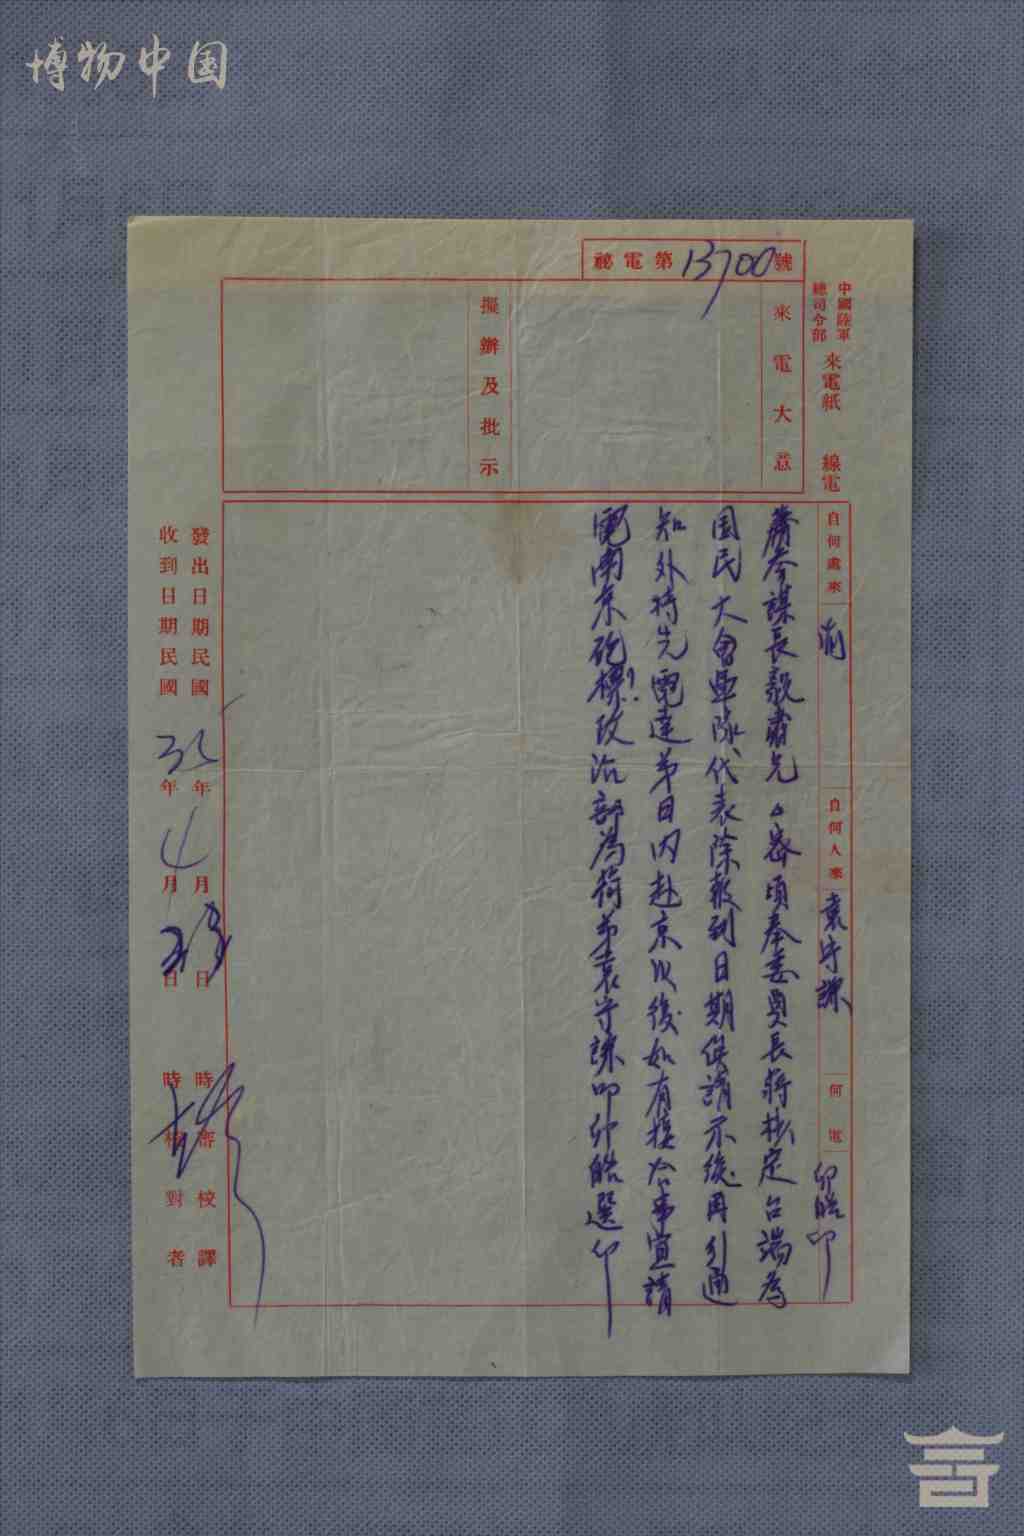 博物中国
祕電第13700號
中國陸軍
總司令部
來電紙
線電
來電大意
擬辦及批示
自何處來 渝
自何人來 袁守謙
何電 卯皓印
蕭參謀長毅肅兄密頃奉委員長蔣核定台端為
国民大會軍隊代表除報到日期俟請示後再引通
知外特先電達弟日內赴京以後如有接洽事宜請
電南京砲標政治部為荷弟袁守謙叩卯皓選印
發出日期民國 年 月 日 時 審校譯
收到日期民國 年 4月 日 時 核對者
言